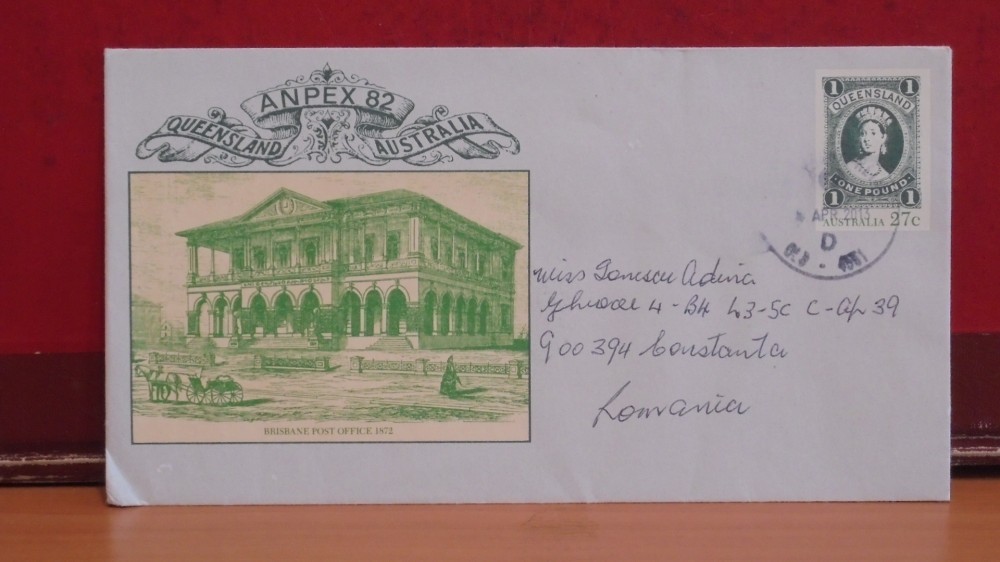 ANPEX 82
QUEENSLAND AUSTRALIA
BRISBANE POST OFFICE 1872
1 1
QUEENSLAND
ONE POUND
1 1
AUSTRALIA 27c
APR 2013
D
Miss Ionescu Adina
4 - BH L3-5C C-Ap 39
900394 Constanta
Romania